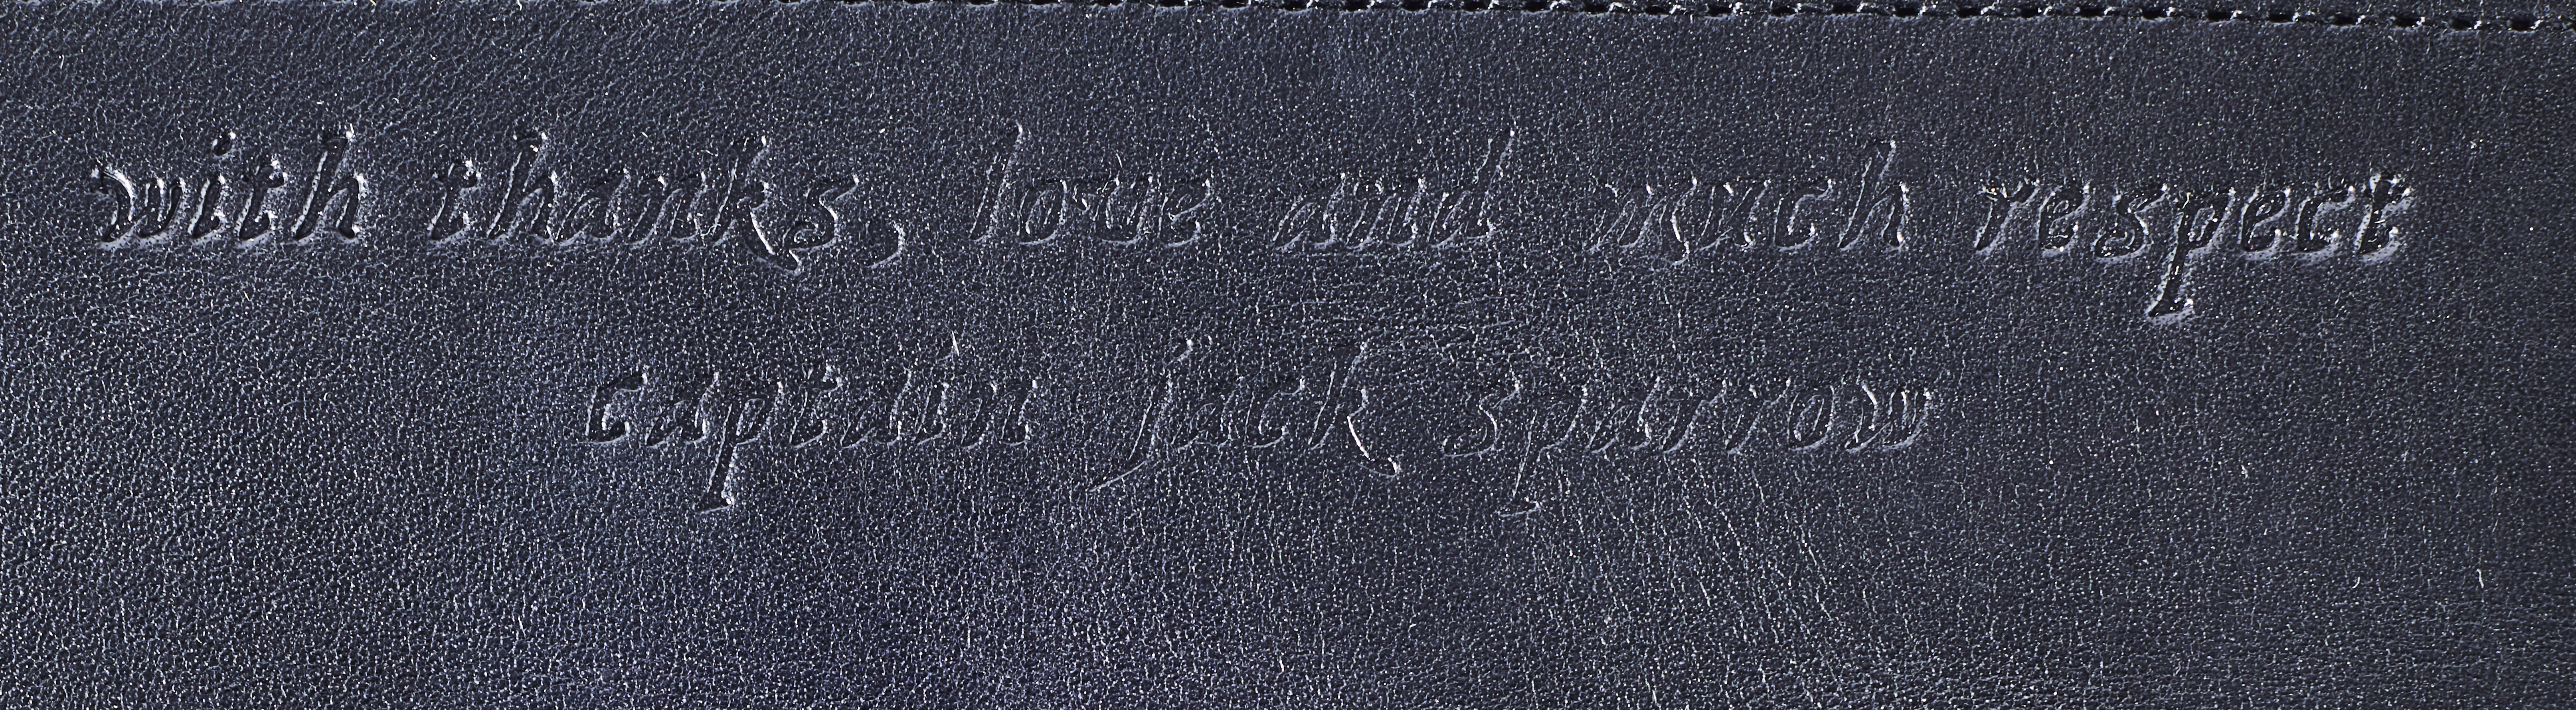 with thanks, love and much respect
captain jack sparrow